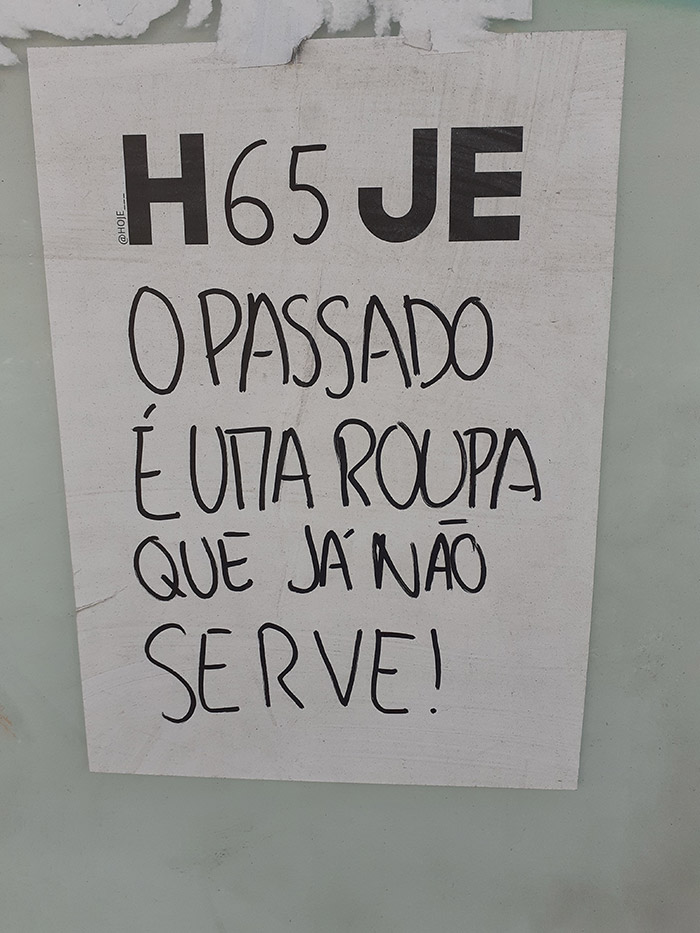 H65JE
@HOJE___
O PASSADO
É UMA ROUPA
QUE JÁ NÃO
SERVE!